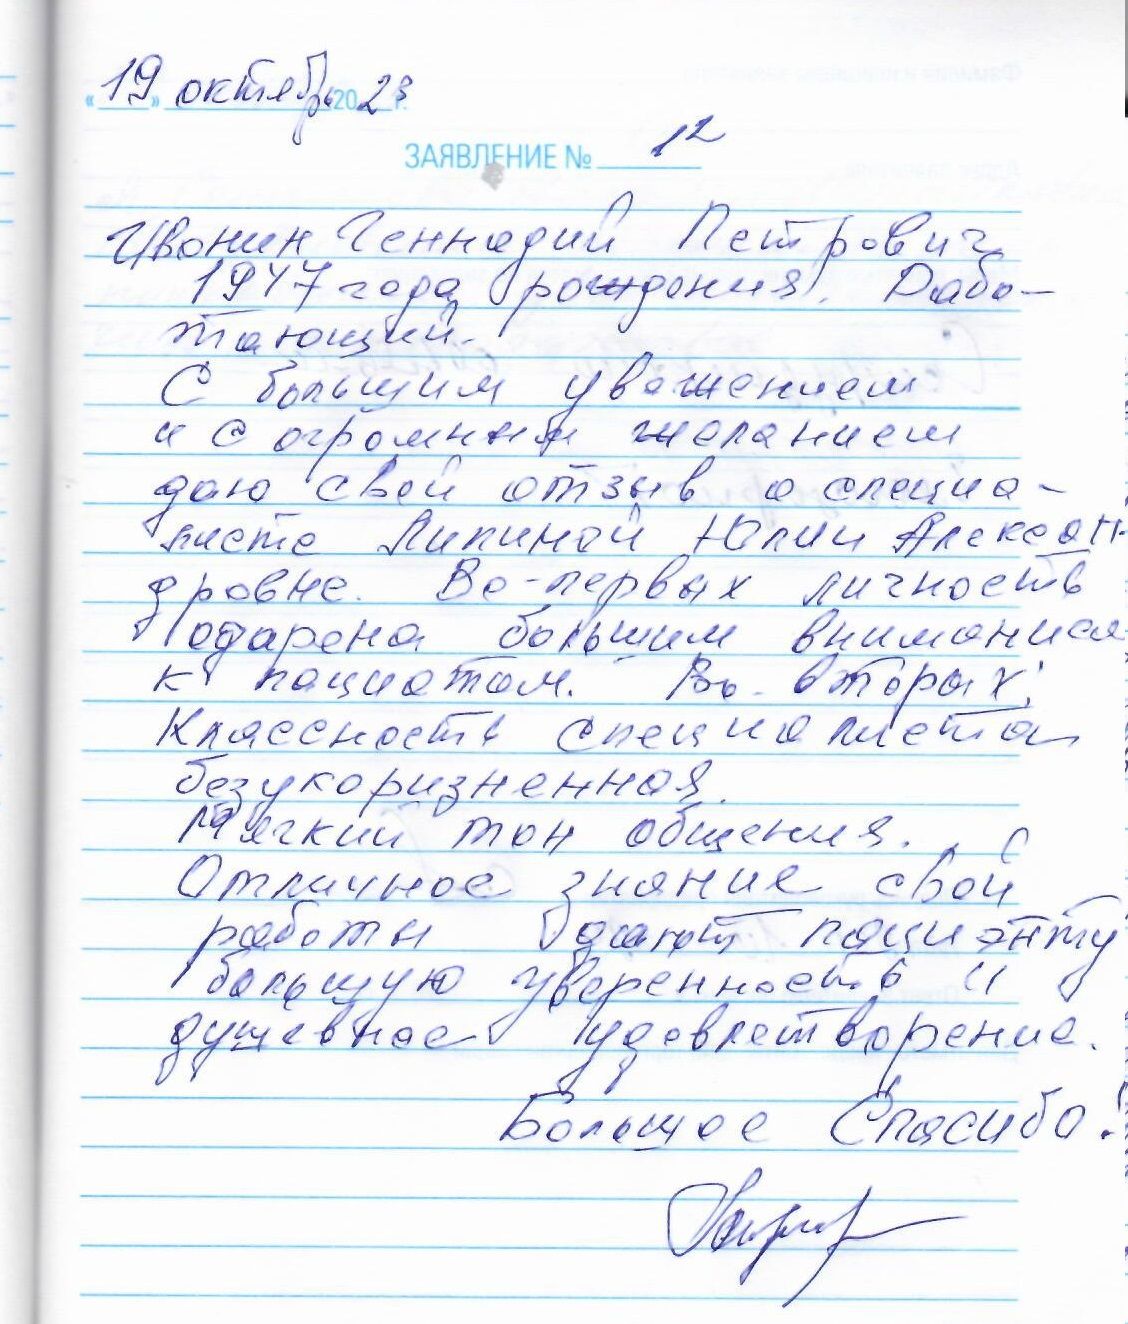 «19» октябрь 2023 г.
ЗАЯВЛЕНИЕ № 12
Ивонин Геннадий Петрович
1947 года рождения. Рабо-
тающий.
С большим уважением
и с огромным желанием
даю свой отзыв о специа-
листе Липиной Юлии Алексан-
дровне. Во-первых личность
одарена большим вниманием
к пациентам. Во-вторых,
Классность специалиста
безукоризненная.
Мягкий тон общения.
Отличное знание свой
работы дают пациэнту
большую уверенность и
душевное удовлетворение.
Большое Спасибо!